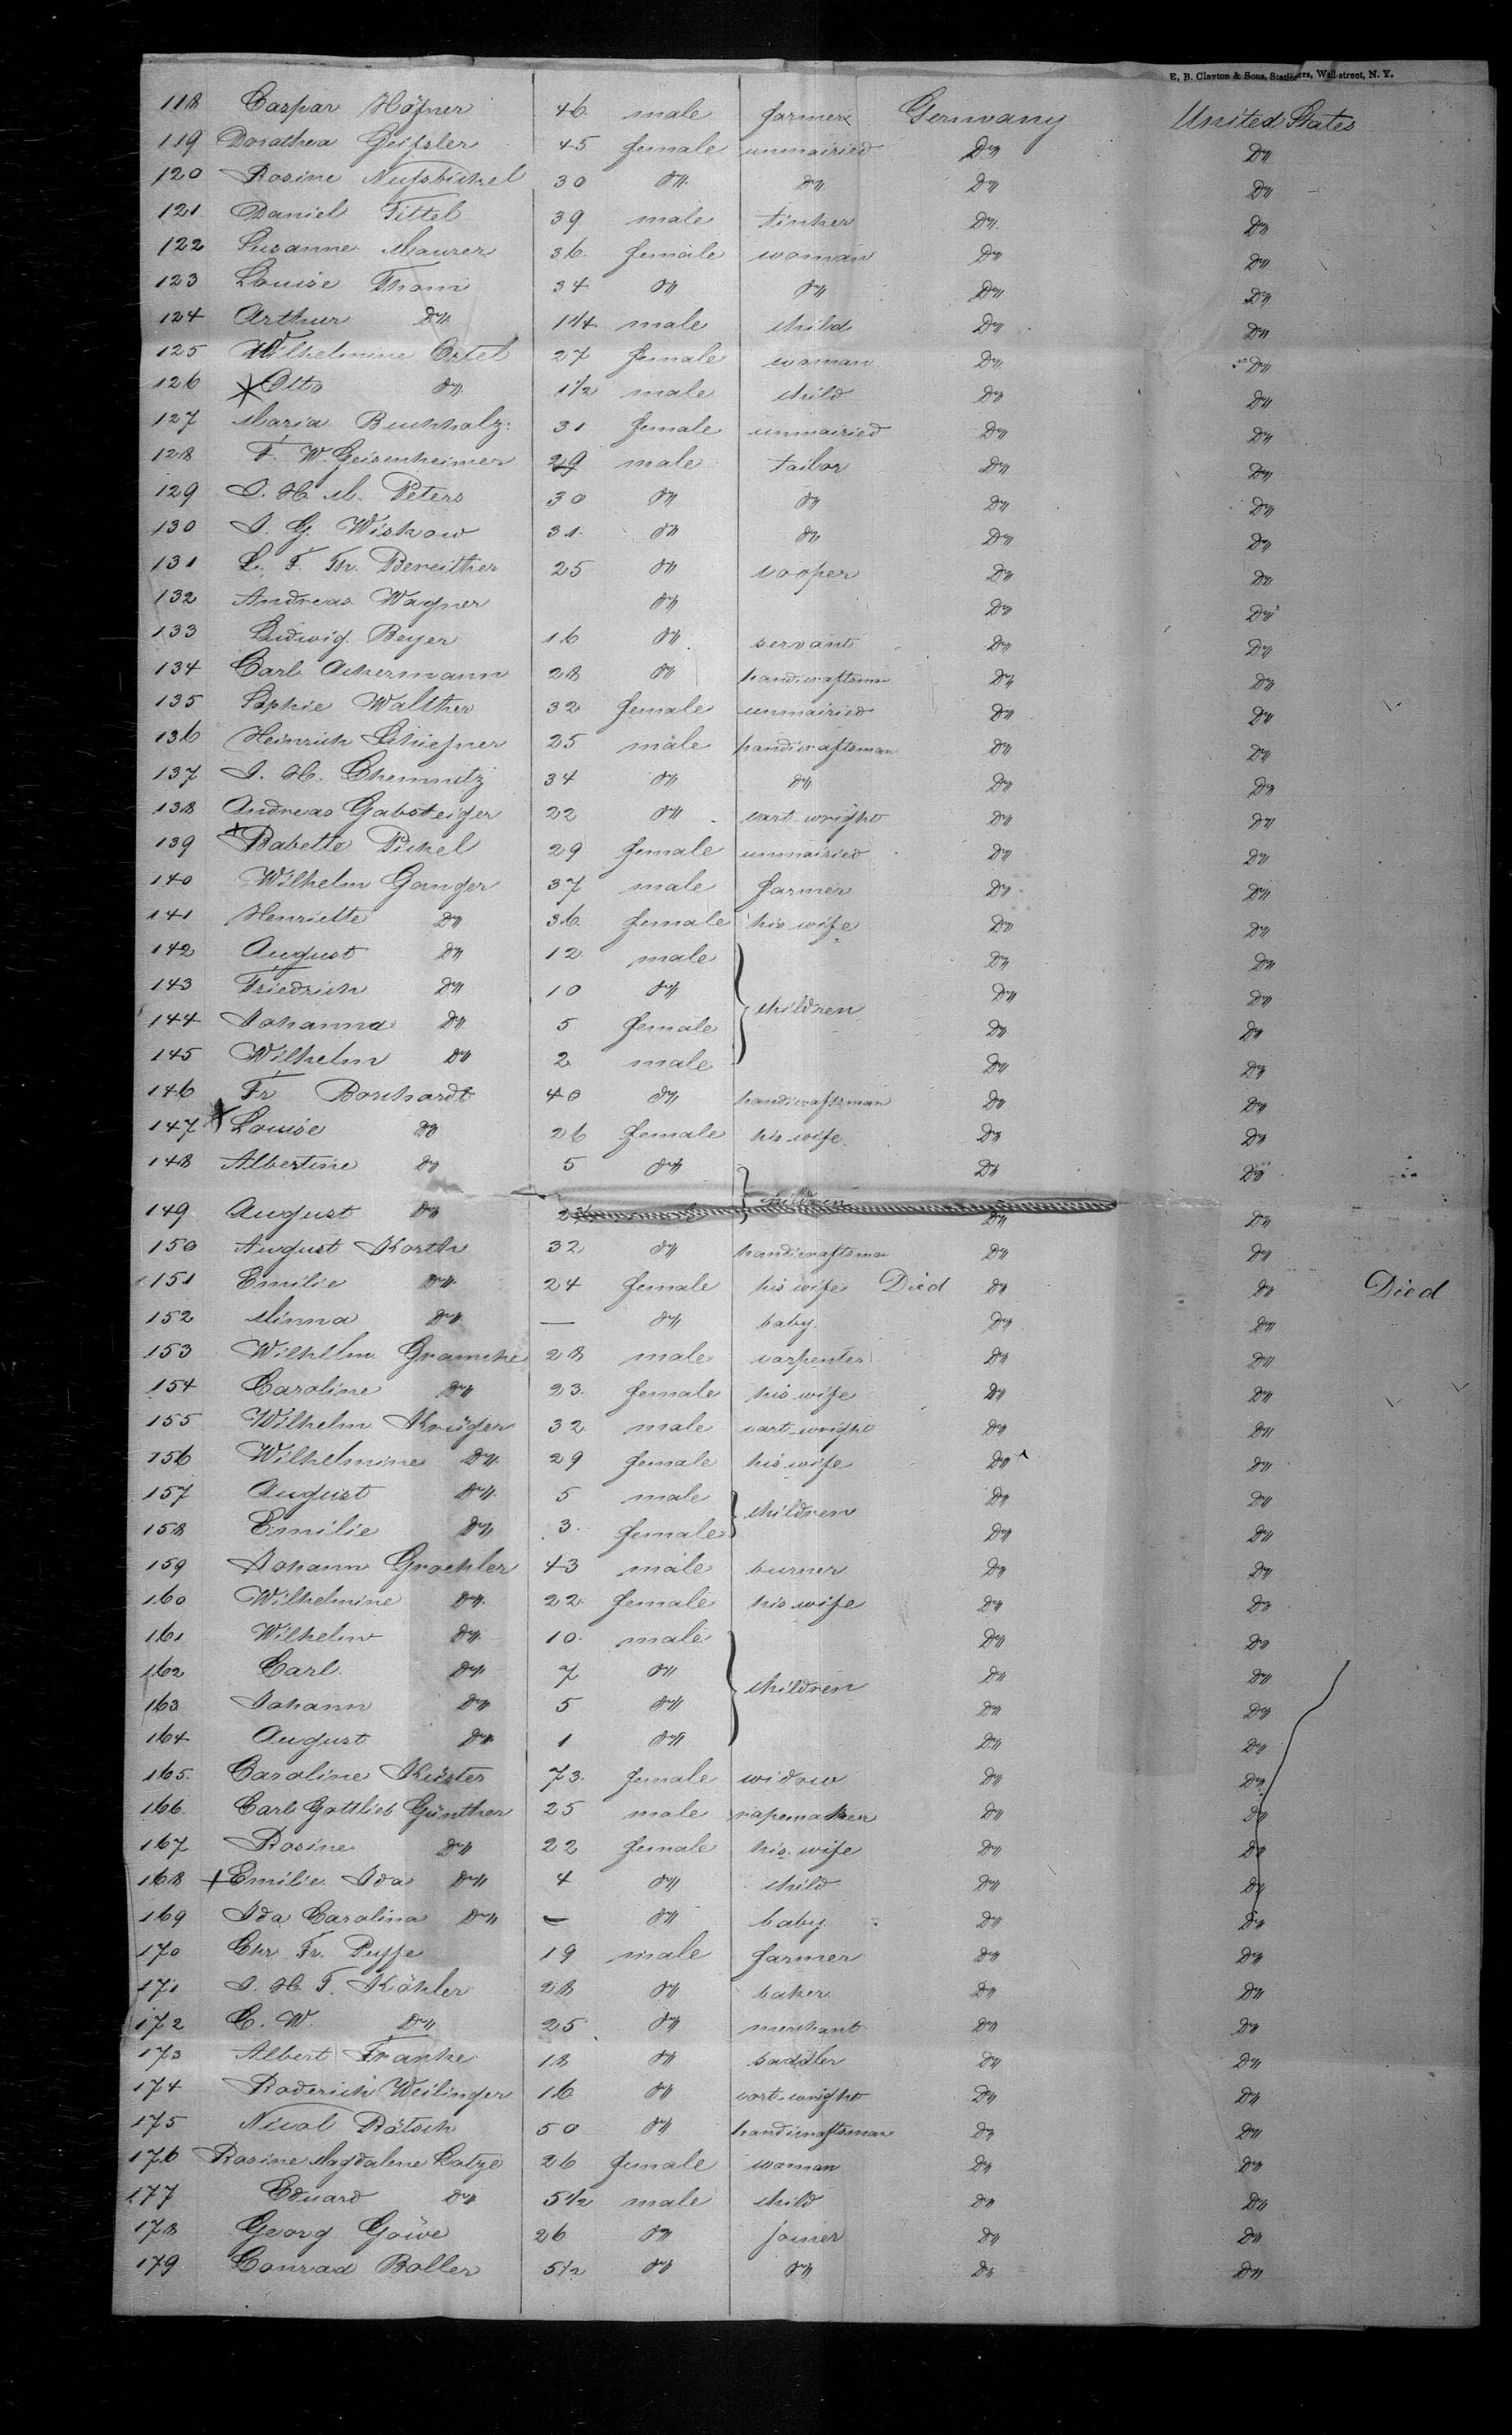 E. B. Clayton & Sons, Stationers, Wall-street, N. Y.
118 Caspar Höfner 46 male farmer Germany United States
119 Dorathea Geifsler 45 female unmairied Do Do
120 Rosine Nufsbickel 30 do do Do Do
121 Daniel Tittel 39 male tinker Do Do
122 Susanne Maurer 36 female woman Do Do
123 Louise Thom 34 do do Do Do
124 Arthur Do 1 1/4 male child Do Do
125 Wilhelmine Ortel 27 female woman Do Do
126 Otto do 1 1/2 male child Do Do
127 Maria Buchholz 31 female unmairied Do Do
128 F. W. Geisenheimer 29 male tailor Do Do
129 J. H. M. Peters 30 do do Do Do
130 J. G. Wiskow 31 do do Do Do
131 L. F. Th. Bereither 25 do cooper Do Do
132 Andreas Wagner do Do Do
133 Ludwig Beyer 16 do servant Do Do
134 Carl Ackermann 28 do handicraftsman Do Do
135 Sophie Walther 32 female unmairied Do Do
136 Heinrich Schiefner 25 male handicraftsman Do Do
137 J. H. Chemnitz 34 do do Do Do
138 Andreas Gabsteiger 22 do cart-wright Do Do
139 Babette Pickel 29 female unmairied Do Do
140 Wilhelm Ganger 37 male farmer Do Do
141 Henriette Do 36 female his wife Do Do
142 August Do 12 male Do Do
143 Friedrich Do 10 do children Do Do
144 Johanna Do 5 female Do Do
145 Wilhelm Do 2 male Do Do
146 Fr Borchardt 40 do handicraftsman Do Do
147 Louise Do 26 female his wife Do Do
148 Albertine Do 5 do Do Do
149 August Do 2 children Do Do
150 August Korth 32 do handicraftsman Do Do
151 Emilie Do 24 female his wife Died Do Do Died
152 Minna Do — do baby Do Do
153 Wilhelm Gramcke 28 male carpenter Do Do
154 Caroline Do 23 female his wife Do Do
155 Wilhelm Krüger 32 male cart-wright Do Do
156 Wilhelmine Do 29 female his wife Do Do
157 August Do 5 male children Do Do
158 Emilie Do 3 female Do Do
159 Johann Groehler 43 male burner Do Do
160 Wilhelmine Do 22 female his wife Do Do
161 Wilhelm Do 10 male Do Do
162 Carl Do 7 do children Do Do
163 Johann Do 5 do Do Do
164 August Do 1 do Do Do
165 Caroline Küster 73 female widow Do Do
166 Carl Gottlieb Günther 25 male ropemaker Do Do
167 Rosine Do 22 female his wife Do Do
168 Emilie Ida Do 4 do child Do Do
169 Ida Carolina Do — do baby Do Do
170 Chr Fr. Puffe 19 male farmer Do Do
171 J. H. F. Köhler 28 do baker Do Do
172 C. W. Do 25 do merchant Do Do
173 Albert Franke 18 do saddler Do Do
174 Roderich Weilinger 16 do cart-wright Do Do
175 Nicol Rätsch 50 do handicraftsman Do Do
176 Rosine Magdalene Lotze 26 female woman Do Do
177 Eduard Do 5 1/2 male child Do Do
178 Georg Göwe 26 do joiner Do Do
179 Conrad Boller 51/2 do do Do Do